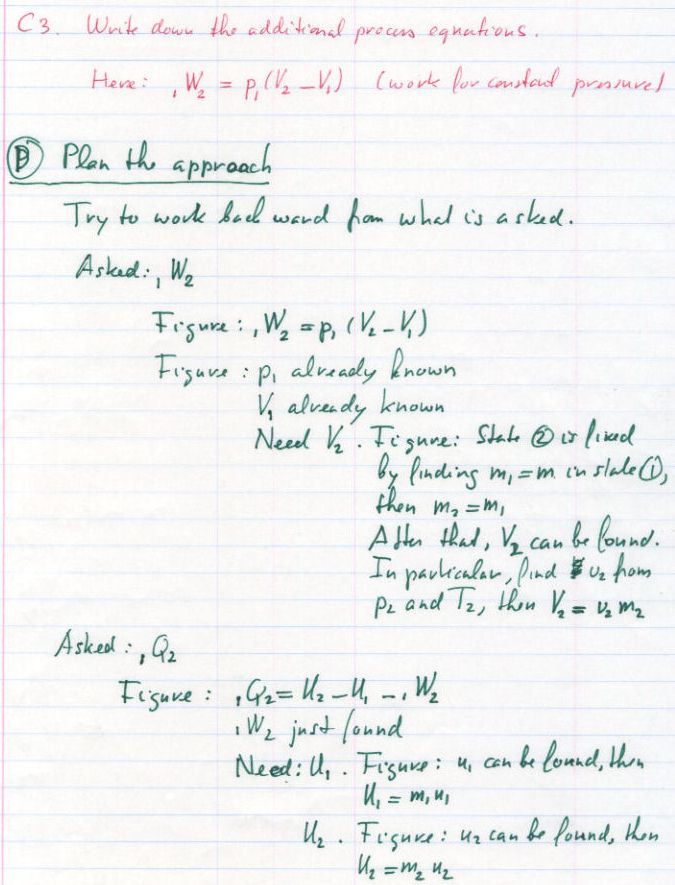 C3. Write down the additional process equations.
Here: ₁W₂ = p₁(V₂ – V₁) (work for constant pressure)
Ⓓ Plan the approach
Try to work backward from what is asked.
Asked: ₁W₂
Figure: ₁W₂ = p₁(V₂ – V₁)
Figure: p₁ already known
V₁ already known
Need V₂. Figure: State ② is fixed
by finding m₁ = m in state ①,
then m₂ = m₁
After that, V₂ can be found.
In particular, find v₂ from
p₂ and T₂, then V₂ = v₂ m₂
Asked: ₁Q₂
Figure: ₁Q₂ = U₂ – U₁ – ₁W₂
₁W₂ just found
Need: U₁. Figure: u₁ can be found, then
U₁ = m₁u₁
U₂. Figure: u₂ can be found, then
U₂ = m₂ u₂